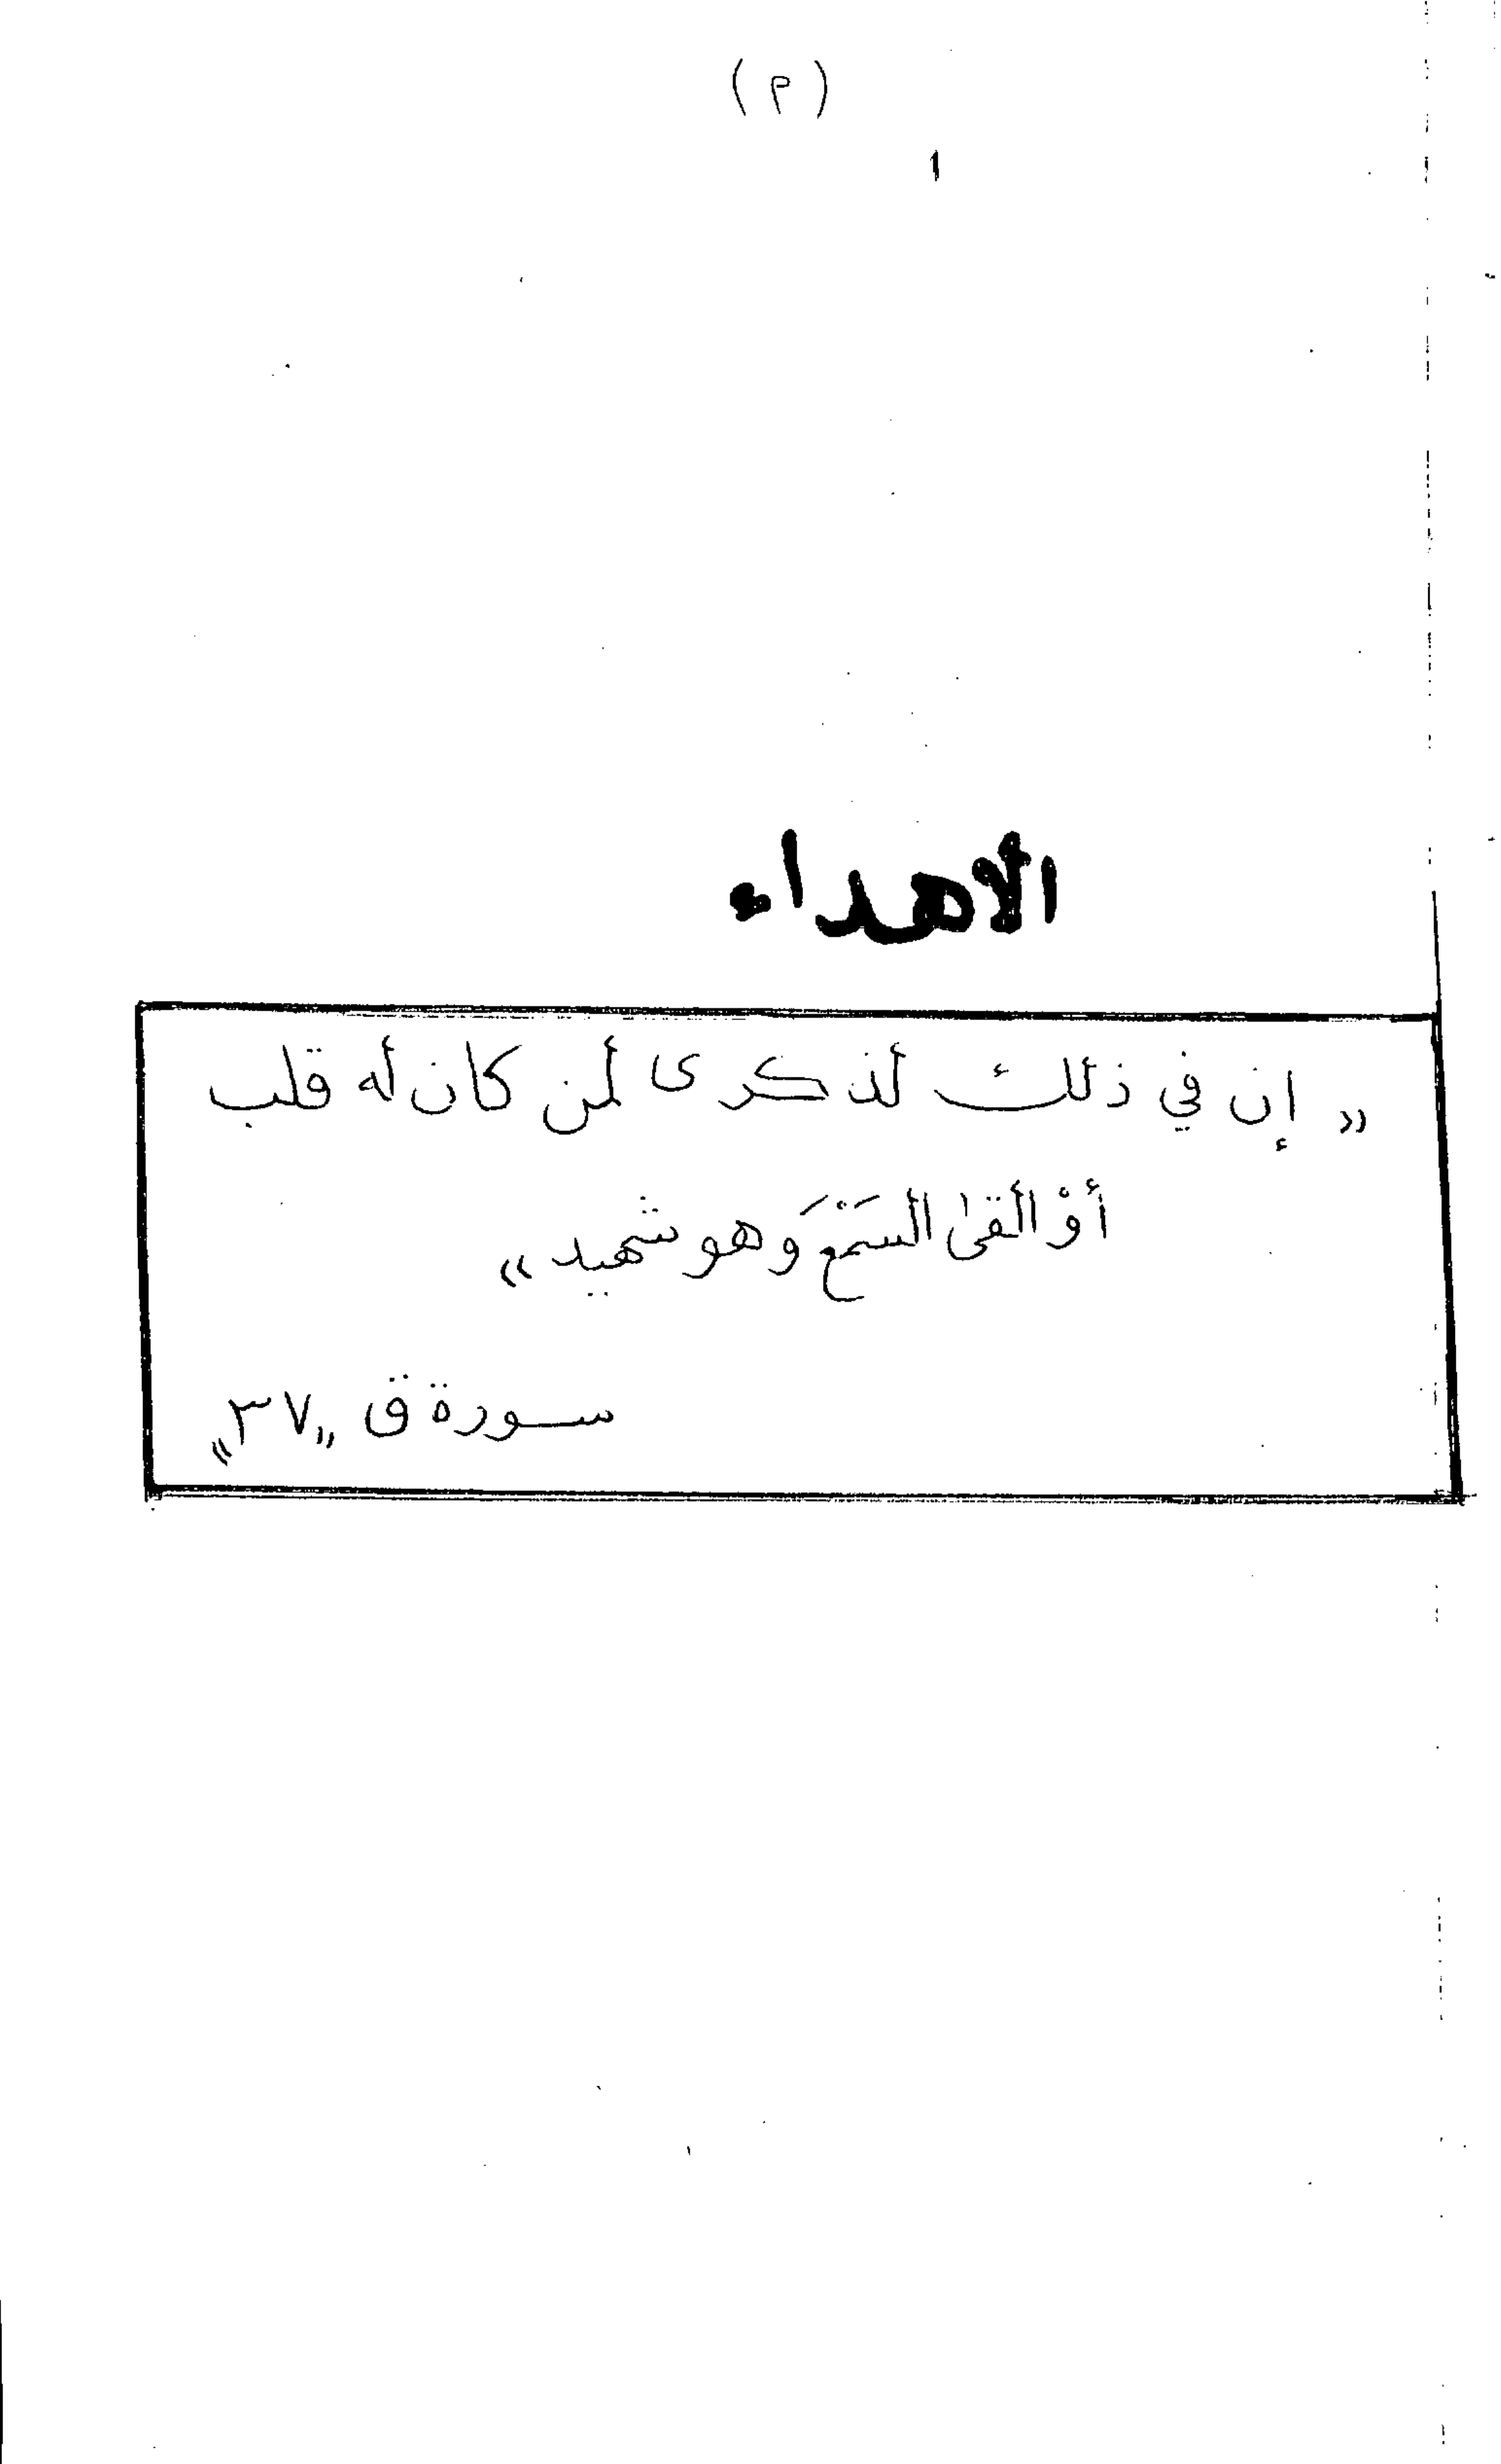 (م)
الأهداء
» إن في ذلك لذكرى لمن كان له قلب
أوْ ألقىٰ السَمْعَ وهو شهيد «
سورة ق „٣٧"